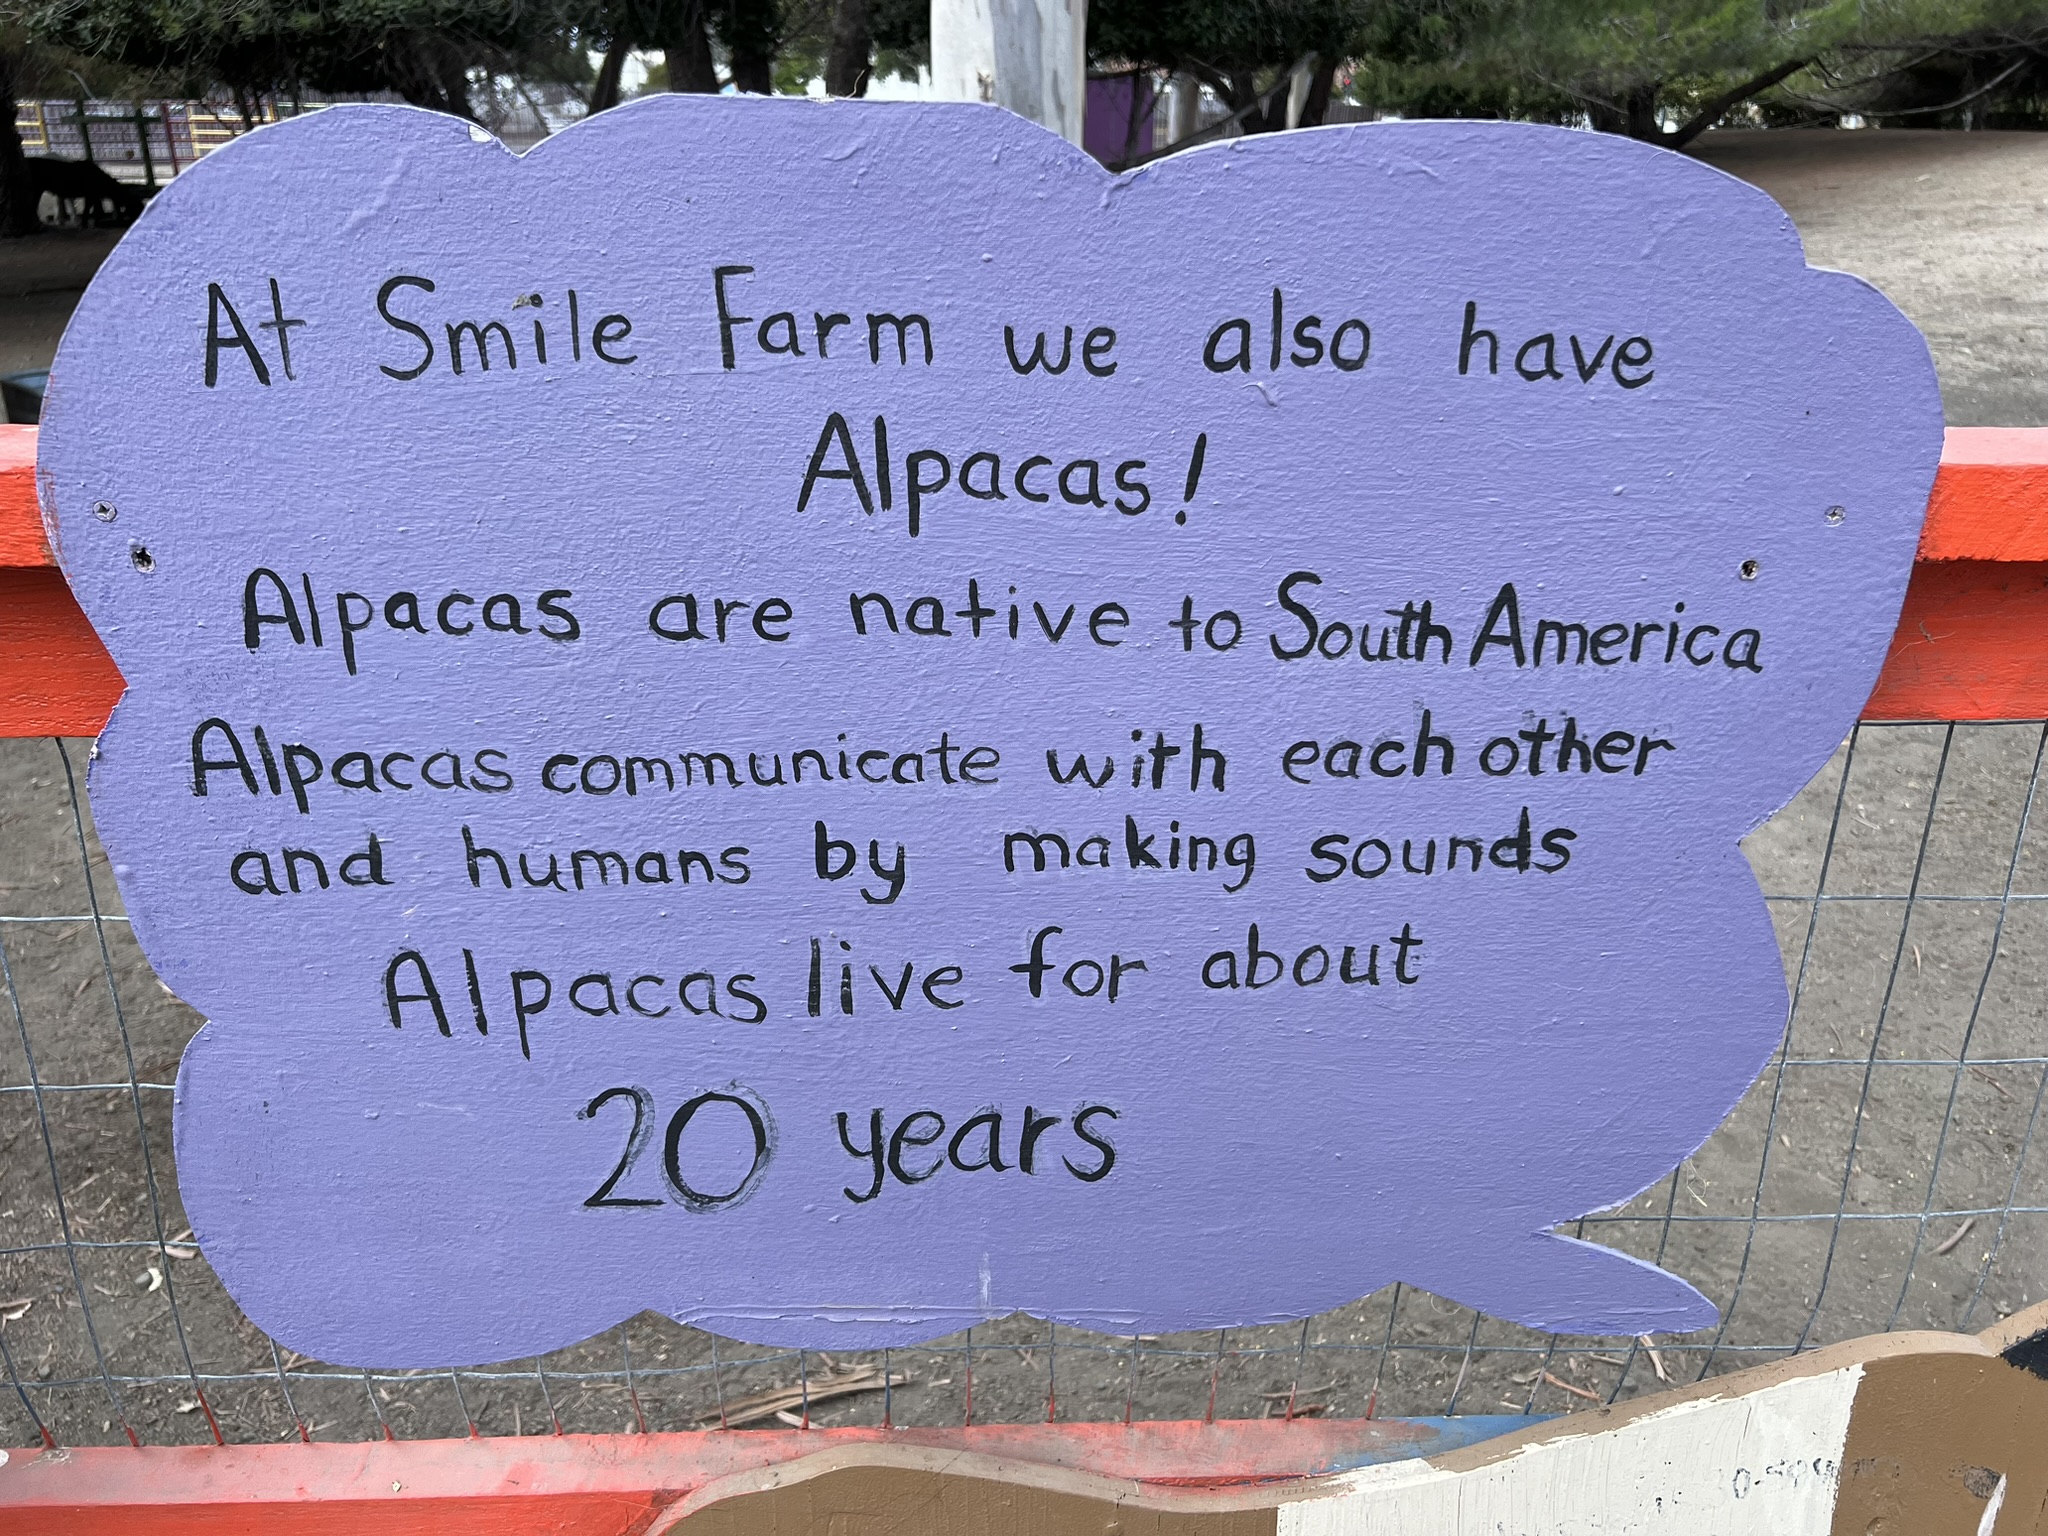 At Smile Farm we also have
Alpacas!
Alpacas are native to South America
Alpacas communicate with each other
and humans by making sounds
Alpacas live for about
20 years